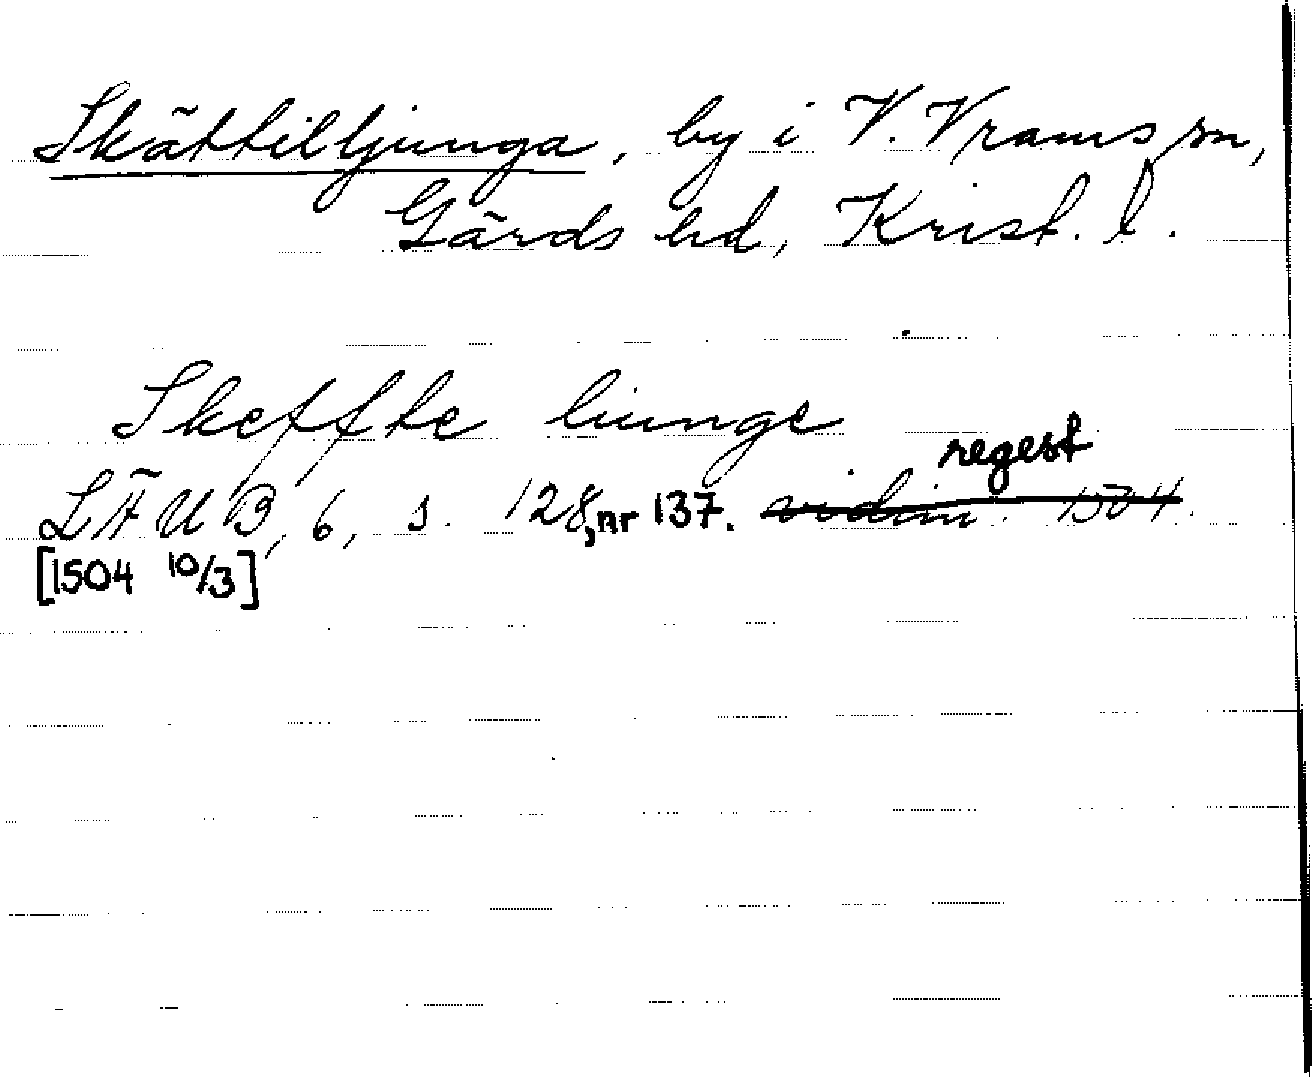 Skättilljunga, by i V. Vrams sn,
Gärds hd, Krist. l.
Skeffte liunge
regest
LÄUB, 6, s. 128, nr 137. vidim. 1504.
[1504 10/3]